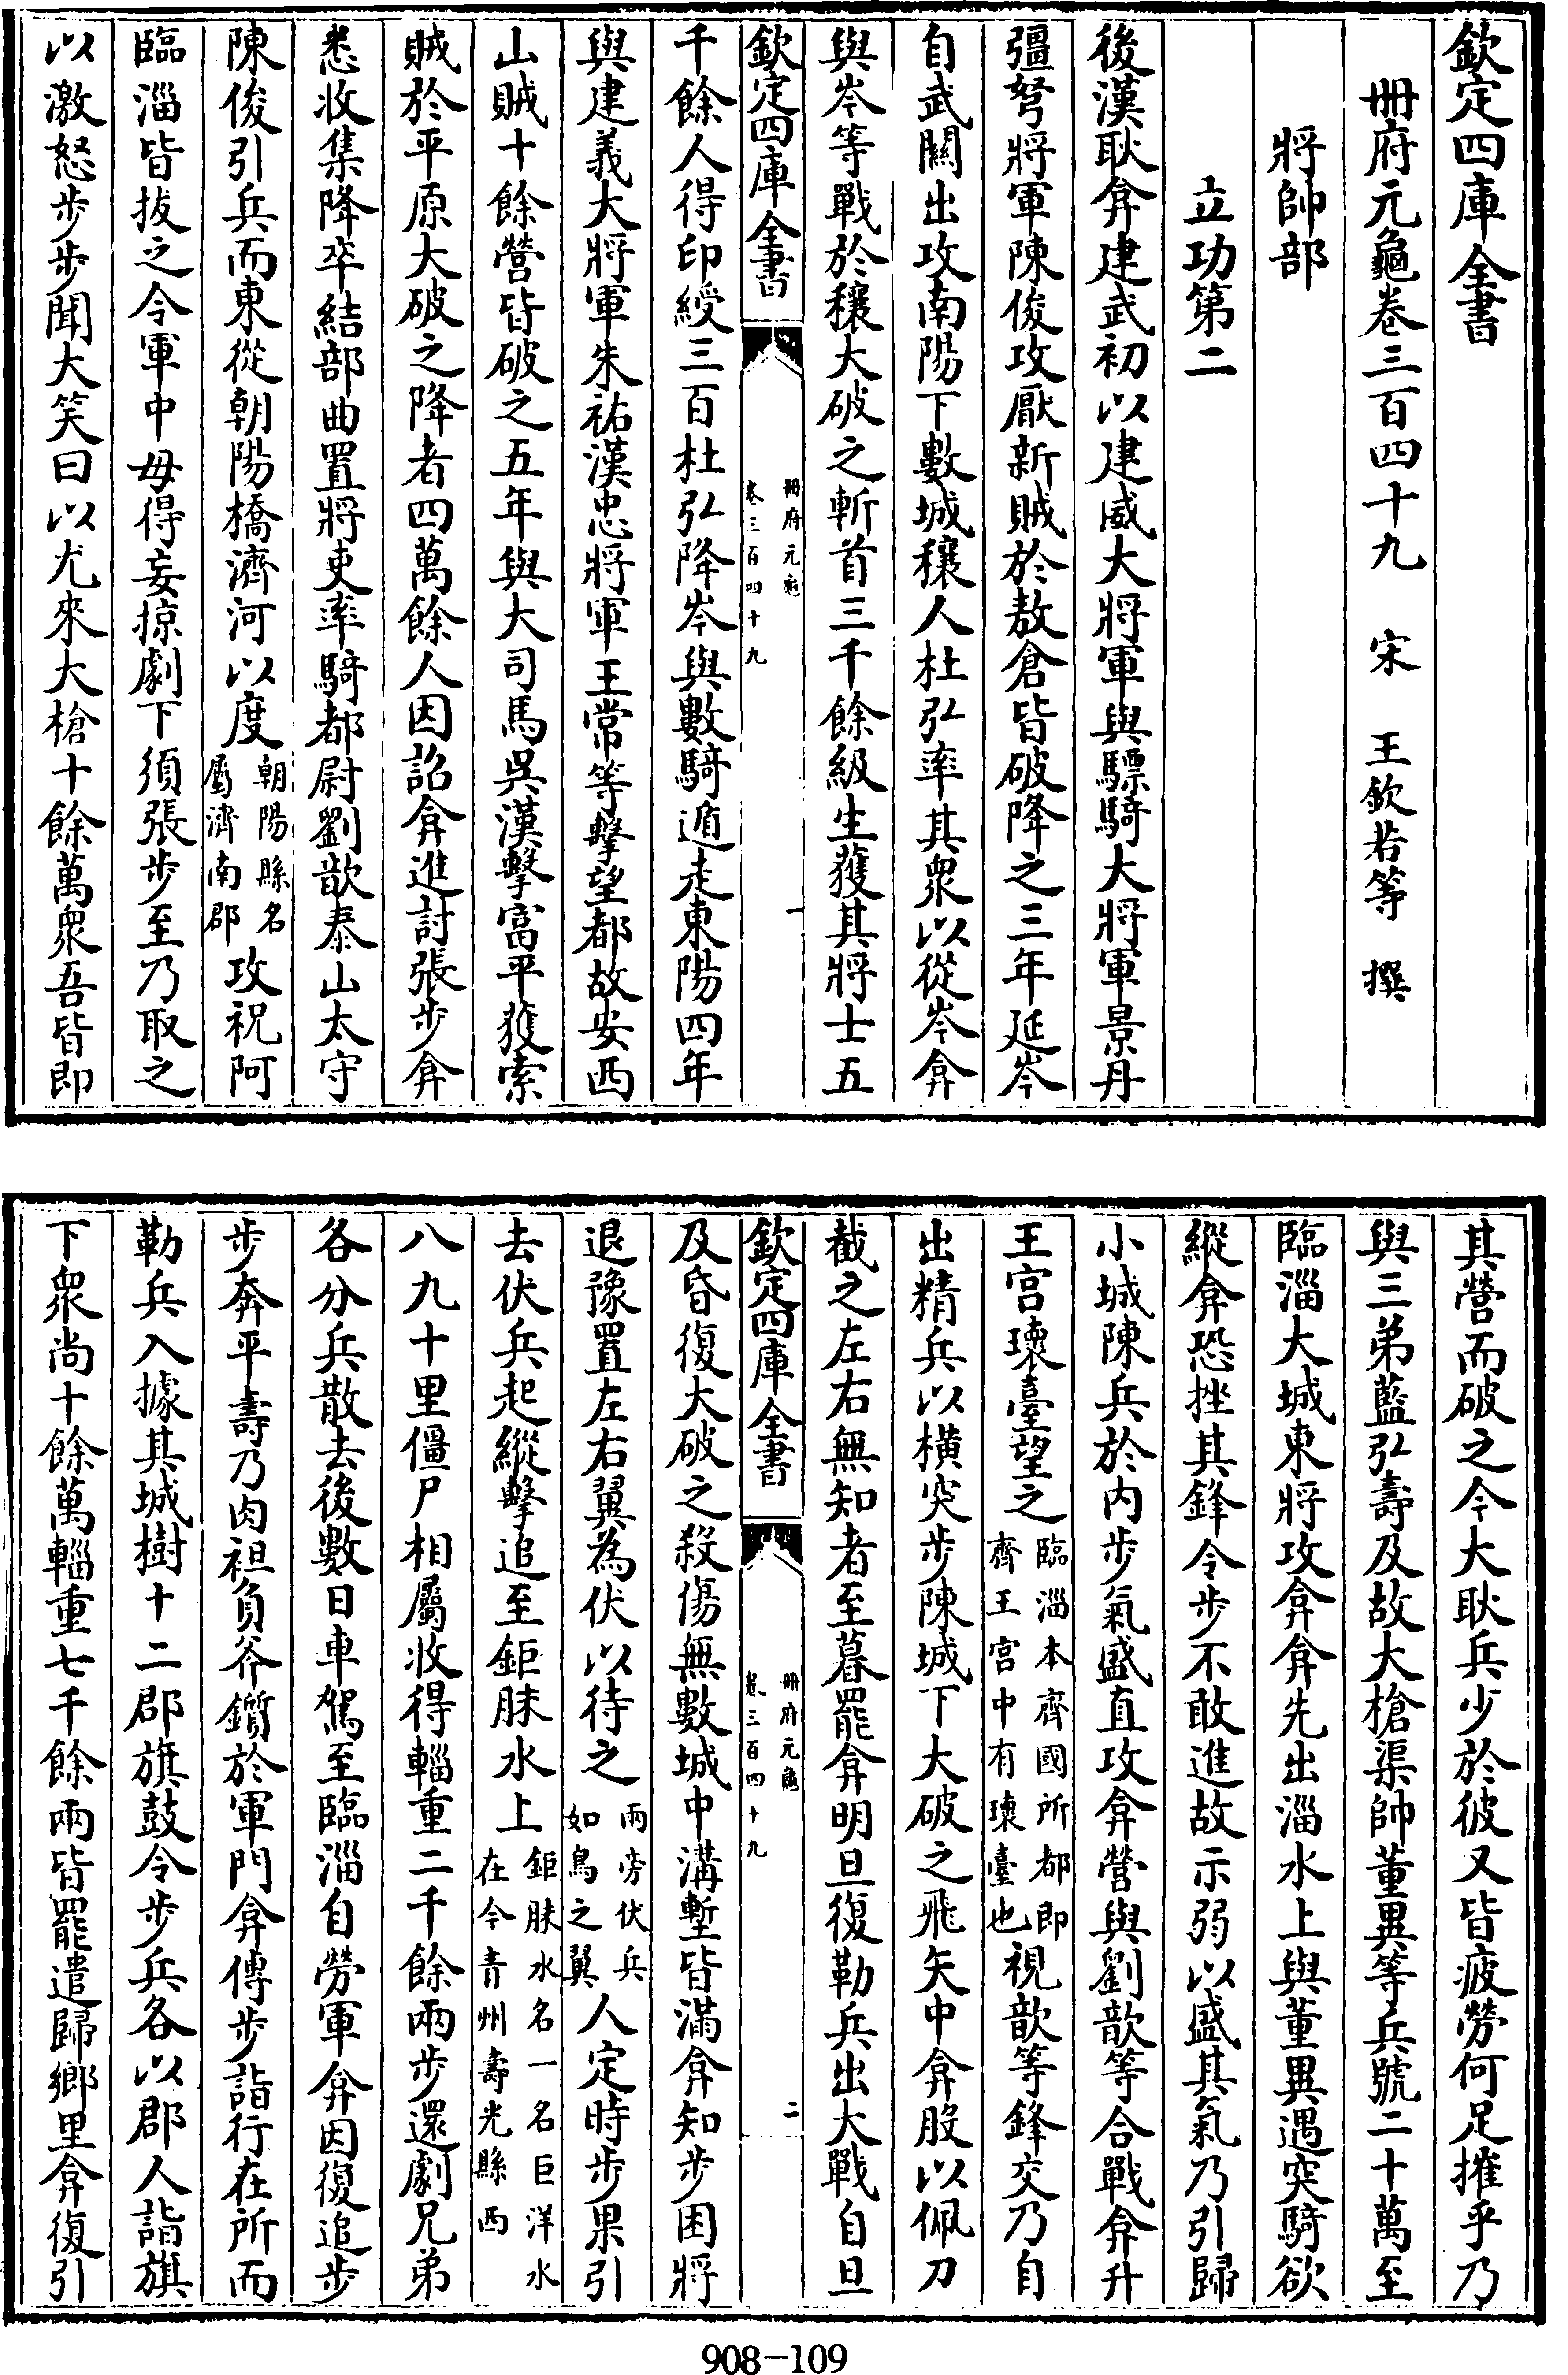 欽定四庫全書
冊府元龜卷三百四十九　宋　王欽若等　撰
將帥部
立功第二
後漢耿弇建武初以建威大將軍與驃騎大將軍景丹
彊弩將軍陳俊攻厭新賊於敖倉皆破降之三年延岑
自武關出攻南陽下數城穰人杜弘率其眾以從岑弇
與岑等戰於穰大破之斬首三千餘級生獲其將士五
欽定四庫全書
冊府元龜
卷三百四十九
一
千餘人得印綬三百杜弘降岑與數騎遁走東陽四年
與建義大將軍朱祐漢忠將軍王常等擊望都故安西
山賊十餘營皆破之五年與大司馬吳漢擊富平獲索
賊於平原大破之降者四萬餘人因詔弇進討張步弇
悉收集降卒結部曲置將吏率騎都尉劉歆泰山太守
陳俊引兵而東從朝陽橋濟河以度朝陽縣名屬濟南郡攻祝阿
臨淄皆拔之令軍中毋得妄掠劇下須張步至乃取之
以激怒步步聞大笑曰以尤來大槍十餘萬眾吾皆即
其營而破之今大耿兵少於彼又皆疲勞何足摧乎乃
與三弟藍弘壽及故大槍渠帥董異等兵號二十萬至
臨淄大城東將攻弇弇先出淄水上與董異遇突騎欲
縱弇恐挫其鋒令步不敢進故示弱以盛其氣乃引歸
小城陳兵於內步氣盛直攻弇營與劉歆等合戰弇升
王宮瓌臺望之臨淄本齊國所都即齊王宮中有瓌臺也視歆等鋒交乃自
出精兵以橫突步陳城下大破之飛矢中弇股以佩刀
截之左右無知者至暮罷弇明旦復勒兵出大戰自旦
欽定四庫全書
冊府元龜
卷三百四十九
二
及昏復大破之殺傷無數城中溝塹皆滿弇知步困將
退豫置左右翼為伏以待之兩旁伏兵如鳥之翼人定時步果引
去伏兵起縱擊追至鉅眛水上鉅眛水名一名巨洋水在今青州壽光縣西
八九十里僵尸相屬收得輜重二千餘兩步還劇兄弟
各分兵散去後數日車駕至臨淄自勞軍弇因復追步
步奔平壽乃肉袒負斧鑕於軍門弇傳步詣行在所而
勒兵入據其城樹十二郡旗鼓令步兵各以郡人詣旗
下眾尚十餘萬輜重七千餘兩皆罷遣歸鄉里弇復引
908-109